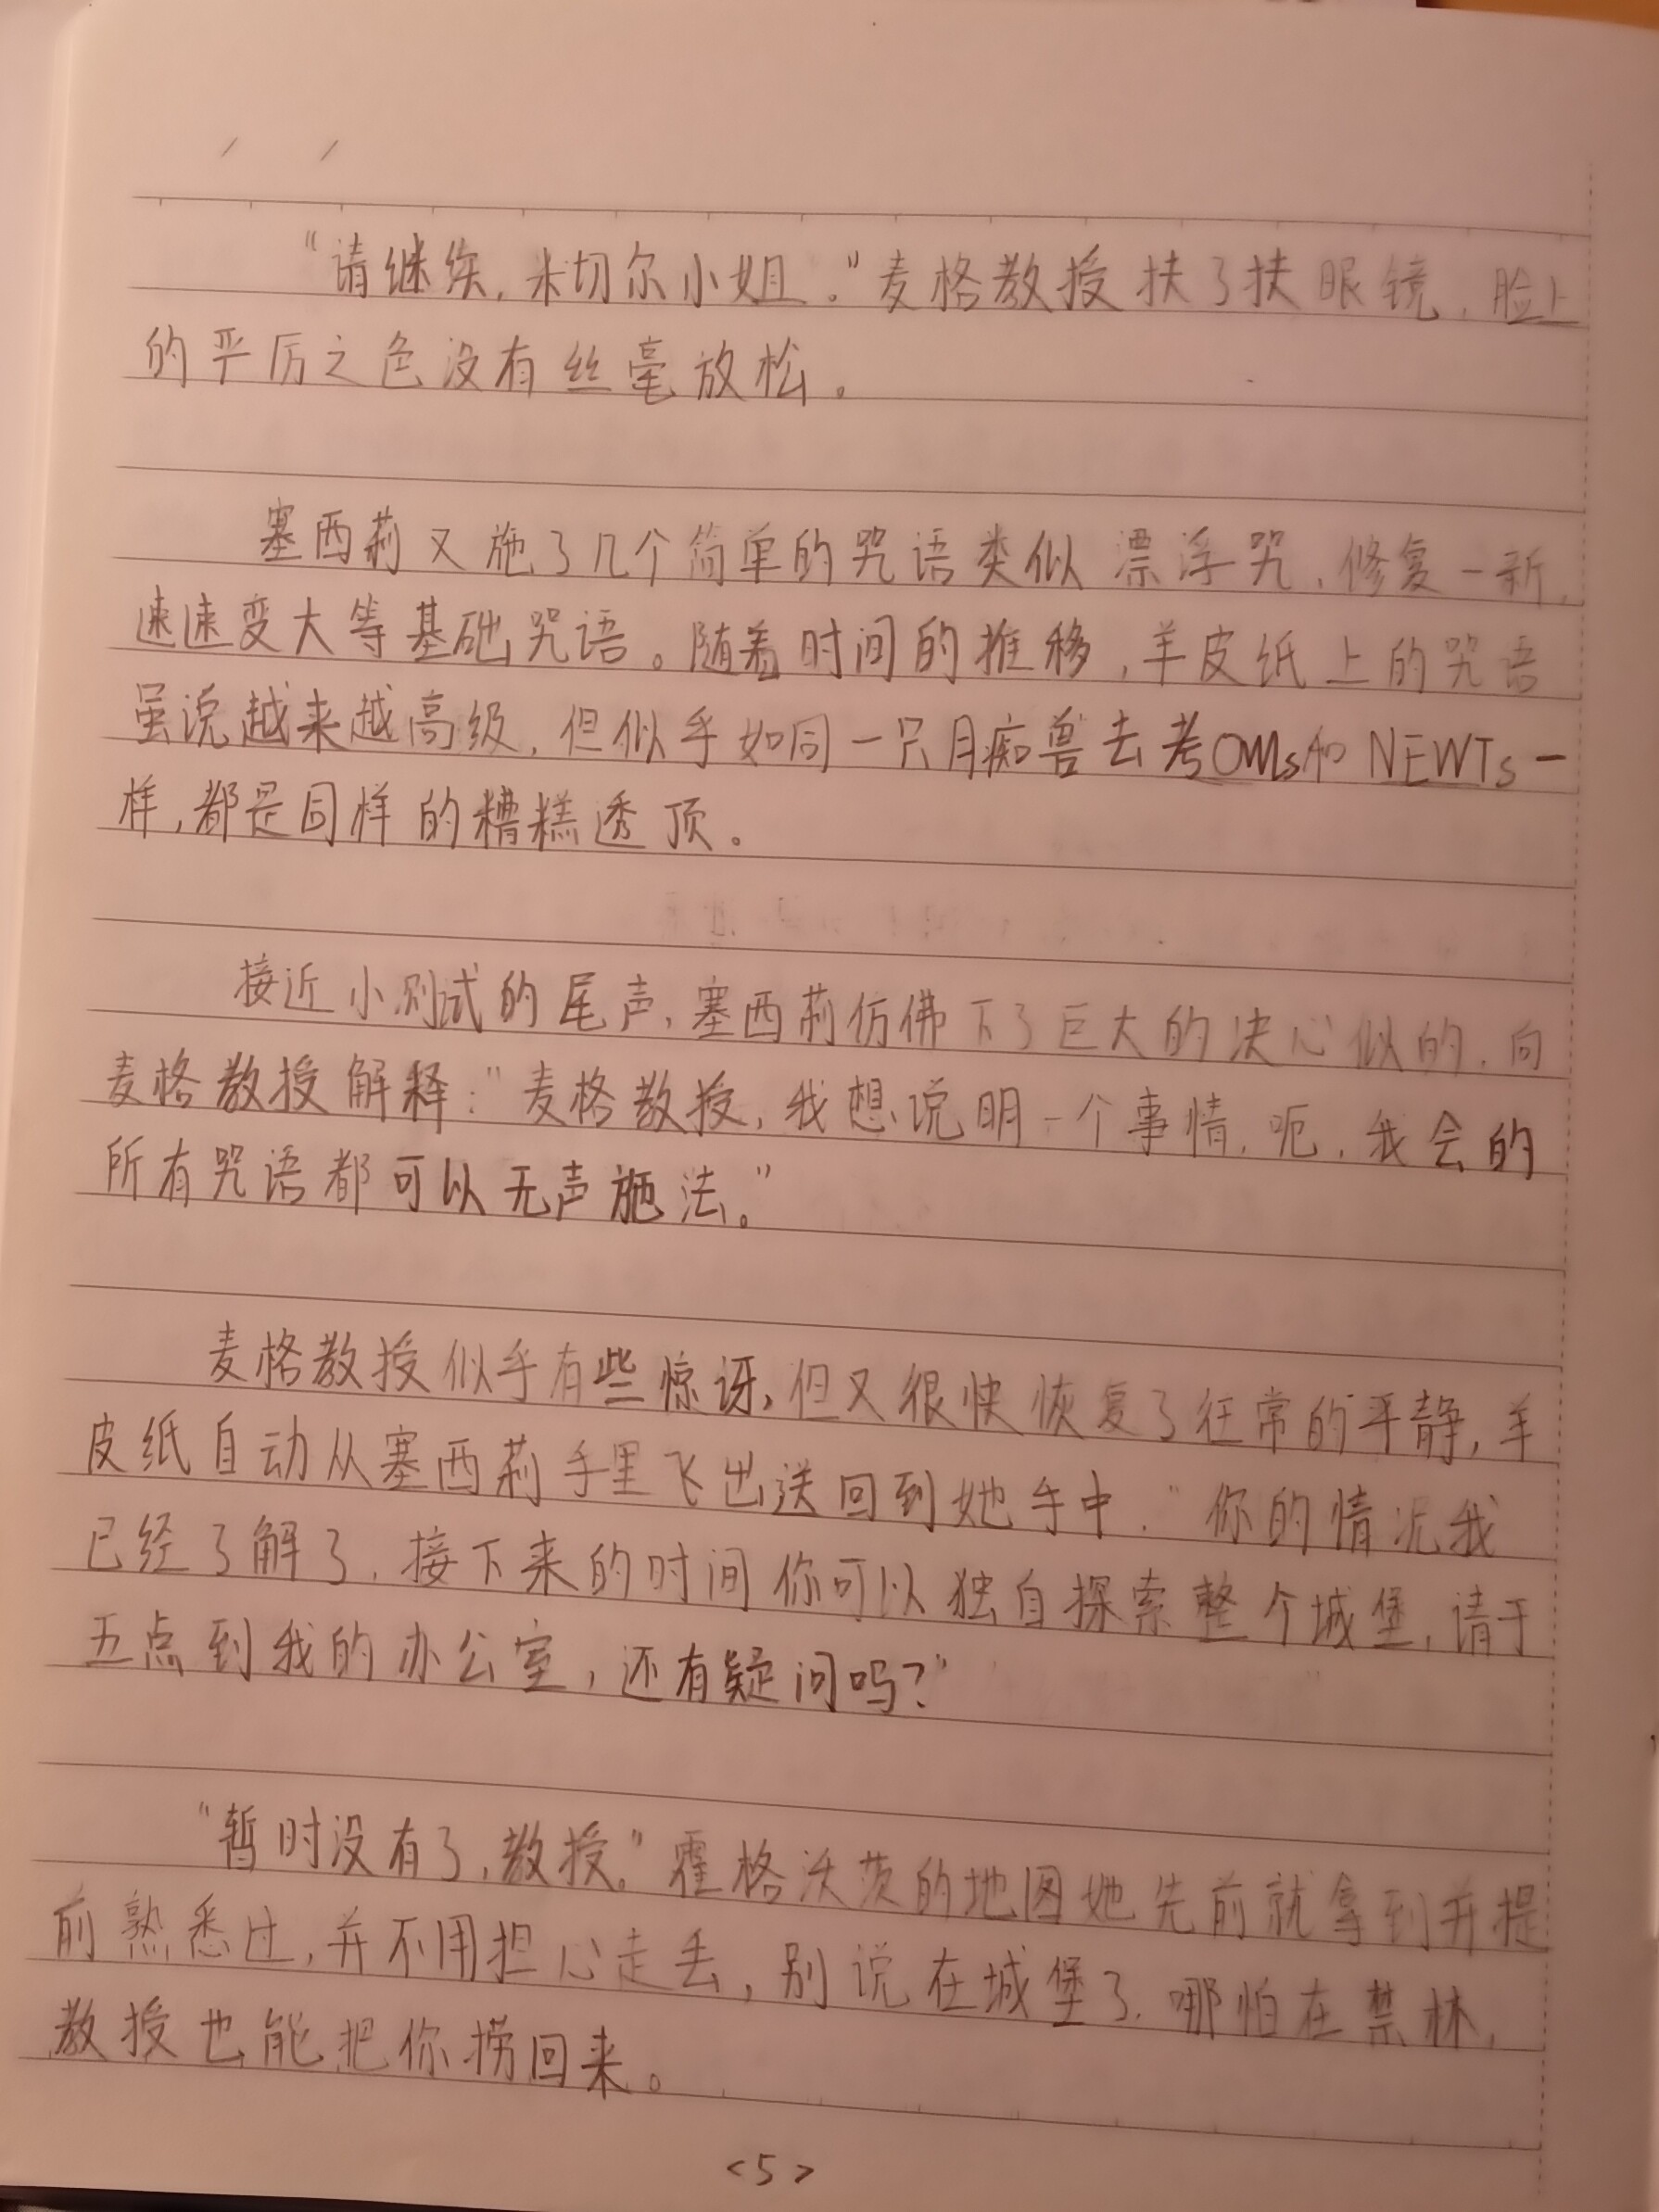 “请继续,米切尔小姐。”麦格教授扶了扶眼镜,脸上
的严厉之色没有丝毫放松。
塞西莉又施了几个简单的咒语类似漂浮咒,修复一新,
速速变大等基础咒语。随着时间的推移,羊皮纸上的咒语
虽说越来越高级,但似乎如同一只月痴兽去考OWLs和NEWTs一
样,都是同样的糟糕透顶。
接近小测试的尾声,塞西莉仿佛下了巨大的决心似的,向
麦格教授解释:“麦格教授,我想说明一个事情,呃,我会的
所有咒语都可以无声施法。”
麦格教授似乎有些惊讶,但又很快恢复了往常的平静,羊
皮纸自动从塞西莉手里飞出送回到她手中.“你的情况我
已经了解了,接下来的时间你可以独自探索整个城堡,请于
五点到我的办公室,还有疑问吗?”
“暂时没有了,教授。”霍格沃茨的地图她先前就拿到并提
前熟悉过,并不用担心走丢,别说在城堡了,哪怕在禁林,
教授也能把你捞回来。
<5>